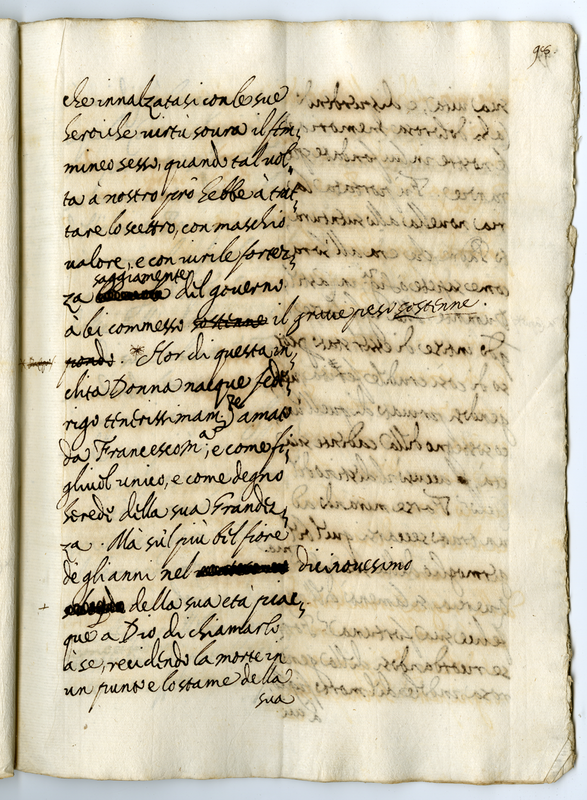 98.
che innalzatasi con le sue
heroiche virtù soura il fem,
mineo sesso, quando tal vol,
ta à nostro prò hebbe à trat,
tare lo scettro, con maschio
valore, e con virile fortez,
za saggiamente dil governo
à lei commesso sostenne il grave peso sostenne.
pondo. * Hor di questa in,
clita Donna nacque fede,
rigo tenerissimam.te amato
da Francesco M.a; e come fi,
gliuol unico, e come degno
herede della sua Grandez,
za. Ma sùl più bel fiore
de gli anni nel dicinovesimo
della sua eta piac,
que a Dio, di chiamarlo
à se, recidendo la morte in
un punto e lo stame della
sua